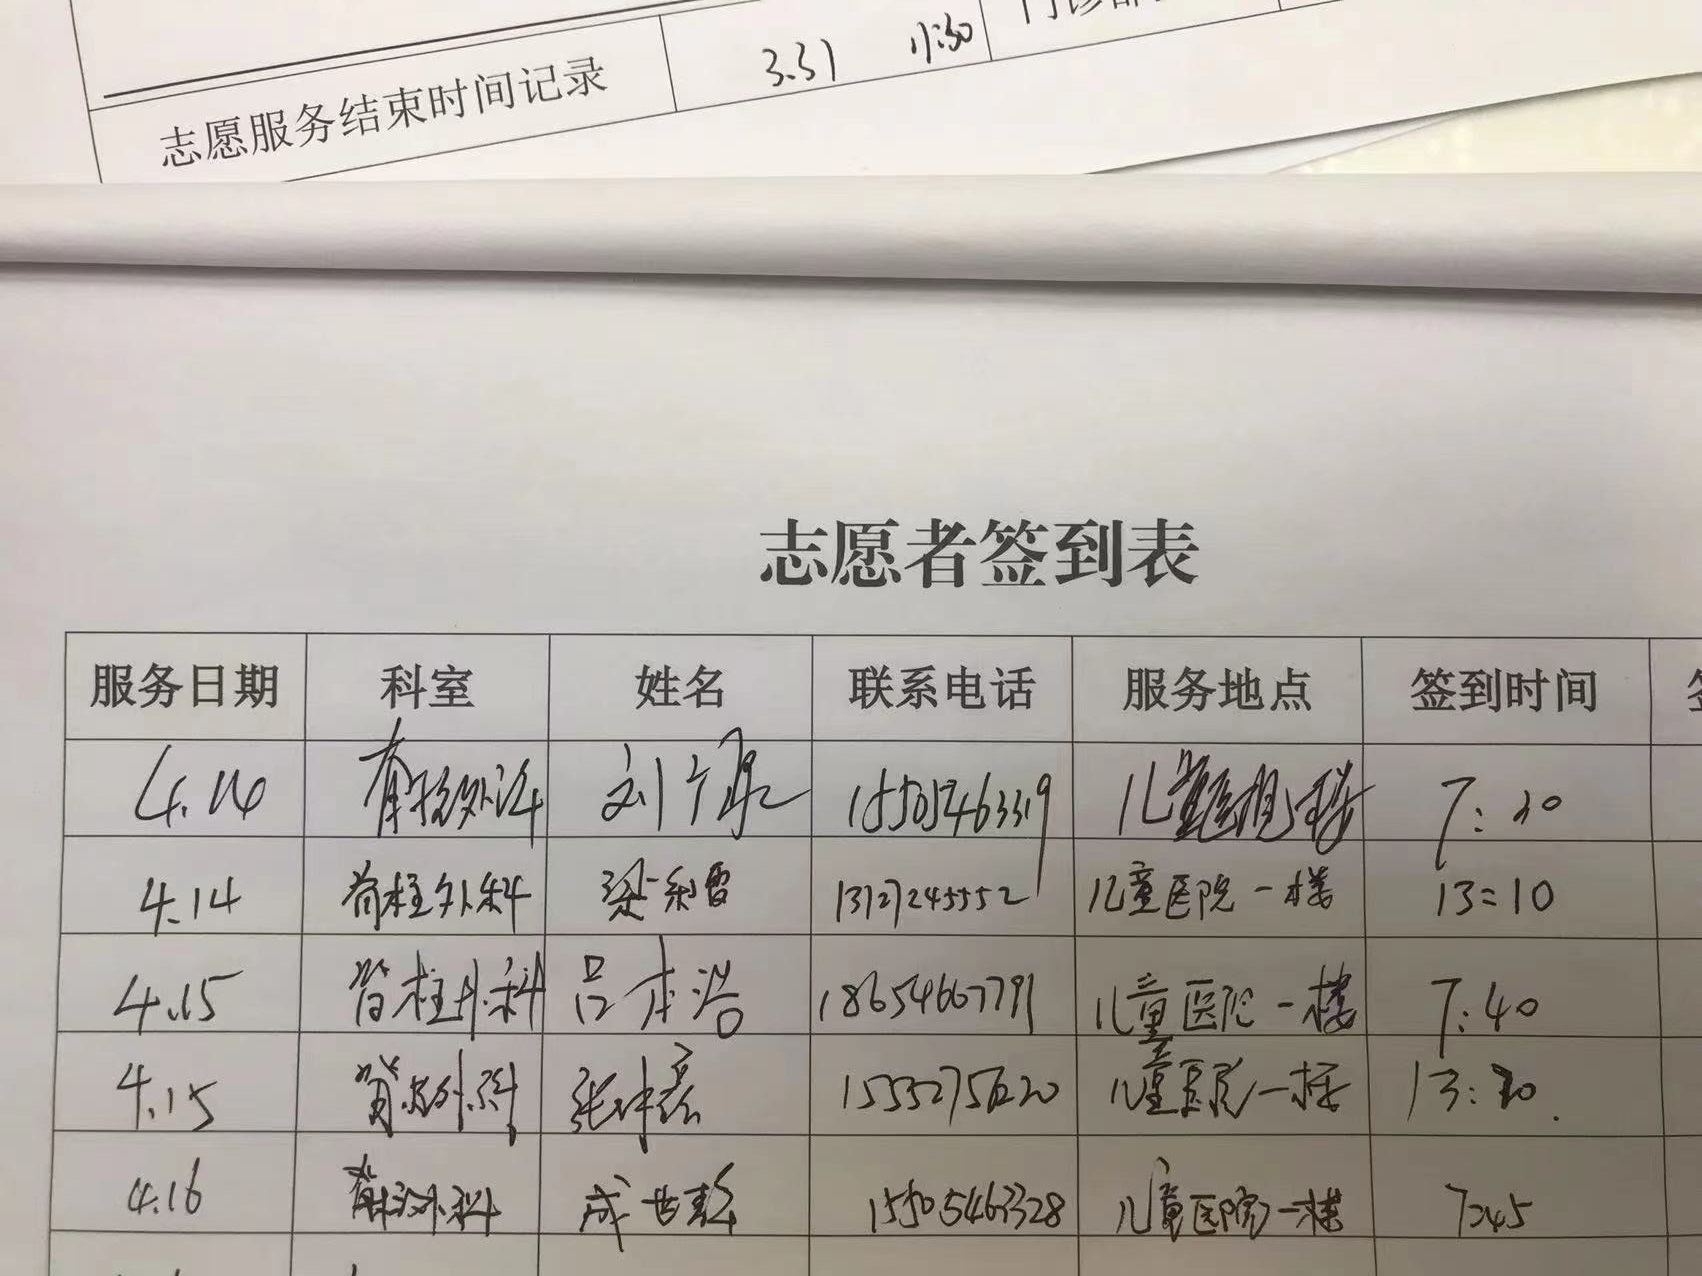 3.31 11:30
志愿服务结束时间记录
志愿者签到表
服务日期 科室 姓名 联系电话 服务地点 签到时间
4.14 脊柱外科 刘 15505463319 儿童医院一楼 7:30
4.14 脊柱外科 13727245552 儿童医院一楼 13:10
4.15 脊柱外科 吕本浩 18654667791 儿童医院一楼 7:40
4.15 脊柱外科 张 儿童医院一楼 13:30
4.16 脊柱外科 成世 15505463328 儿童医院一楼 7:45